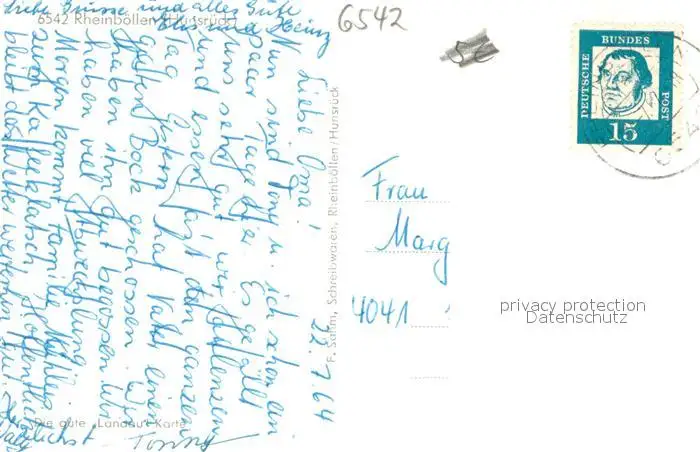 Liebe Grüsse und alles Gute
Elis und Heinz
6542 Rheinböllen / Hunsrück
22.7.64
Liebe Oma!
Nun sind Tony u. ich schon ein
paar Tage hier. Es gefällt
uns sehr gut, wir faulenzen
und essen fast den ganzen
Tag. Gestern hat Vater einen
guten Bock geschossen. Wir
haben ihn gut begossen. Wir
haben viel Abwechslung.
Morgen kommt Familie
zum Kaffeeklatsch. Hoffentlich
bleibt das Wetter weiterhin gut.
Herzlichst
Tonny
Die gute „Landau“-Karte
F. Sahm, Schreibwaren, Rheinböllen / Hunsrück
6542
DEUTSCHE BUNDESPOST
15
Frau
Marg
4041
privacy protection
Datenschutz